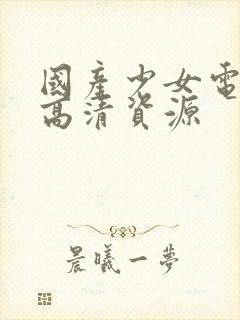 國產少女電
高清資源
晨曦一夢